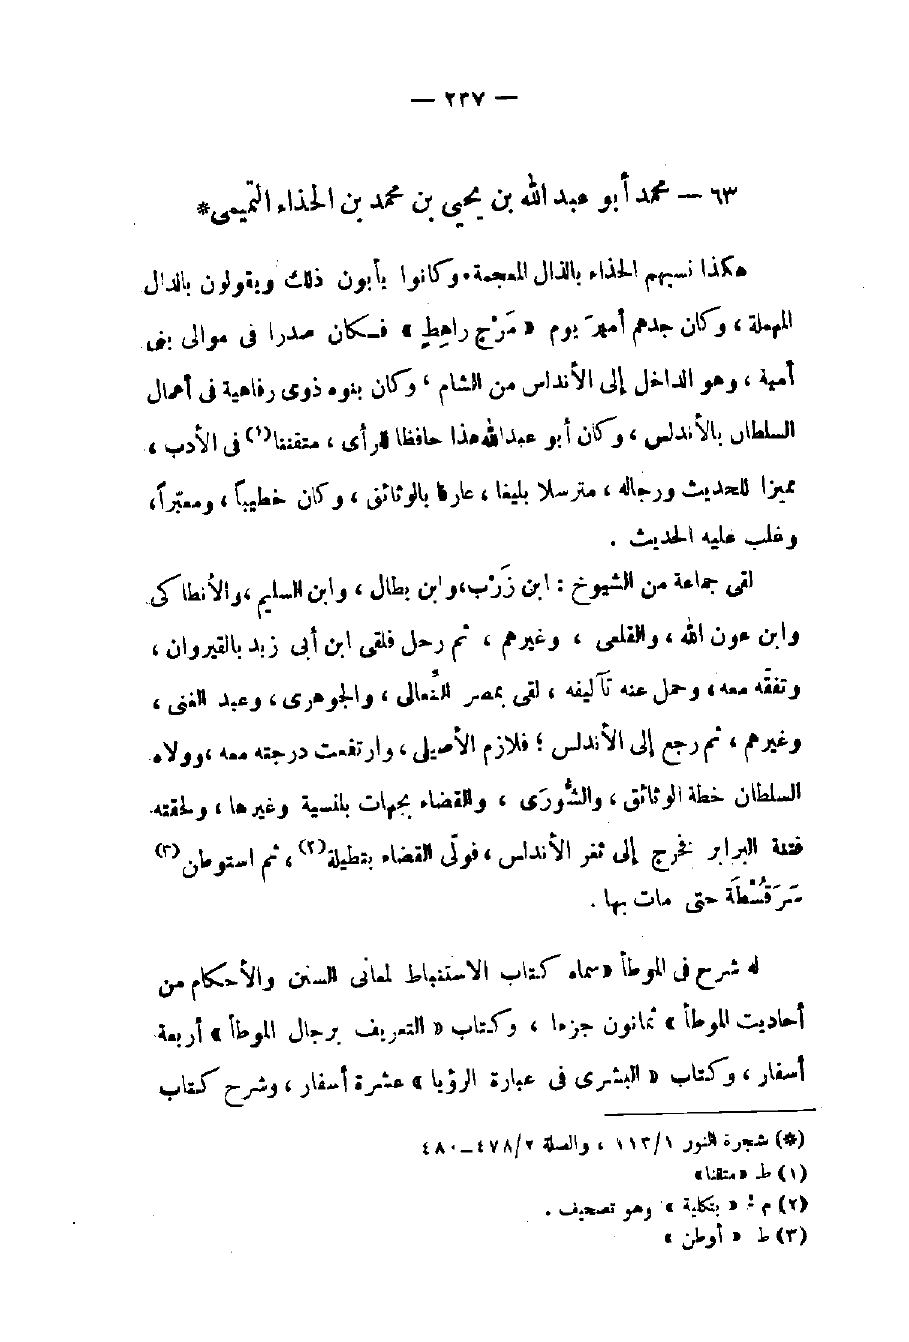 — ٢٣٧ —
٦٣ — محمد أبو عبد الله بن يحيى بن محمد بن الحذاء التميمى*
هكذا نسبهم الحذاء بالذال المعجمة، وكانوا يأبون ذلك ويقولون بالدال
المهملة ، وكان جدهم أميرَ يوم « مَرْج راهِطٍ » فـكان صدرا فى موالى بنى
أمية ، وهو الداخل إلى الأندلس من الشام ، وكان بنوه ذوى رفاهية فى أعمال
السلطان بالأندلس ، وكان أبو عبدالله هذا حافظا للرأى ، متقننا(١) فى الأدب ،
مميزا للحديث ورجاله ، مترسلا بليغا ، عارفا بالوثائق ، وكان خطيباً ، ومعبّراً،
وغلب عليه الحديث .
لقى جماعة من الشيوخ : ابن زَرْب، وابن بطال ، وابن السليم ، والأنطاكى
وابن عون الله ، والقلعى ، وغيرهم ، ثم رحل فلقى ابن أبى زيد بالقيروان ،
وتفقّه معه، وحمل عنه تآليفه ، لقى بمصر النُّعالى ، والجوهرى ، وعبد الغنى ،
وغيرهم ، ثم رجع إلى الأندلس ؛ فلازم الأصيلى ، وارتفعت درجته معه ، وولاه
السلطان خطة الوثائق ، والشُّورَى ، والقضاء بجهات بلنسية وغيرها ، ولحقته
فتنة البرابر فخرج إلى ثغر الأندلس ، فولّى القضاء بتطيلة(٢) ، ثم استوطن(٣)
سَرَقُسْطَة حتى مات بها .
له شرح فى الموطأ «سماه كتاب الاستنباط لمعانى السنن والأحكام من
أحاديث الموطأ » ثمانون جزءا ، وكتاب « التعريف برجال الموطأ » أربعة
أسفار ، وكتاب « البشرى فى عبارة الرؤيا » عشرة أسفار ، وشرح كتاب
(*) شجرة النور ١١٣/١ ، والصلة ٤٧٨/٢–٤٨٠
(١) ط «متقنا»
(٢) م : « بتكلية » وهو تصحيف .
(٣) ط « أوطن »